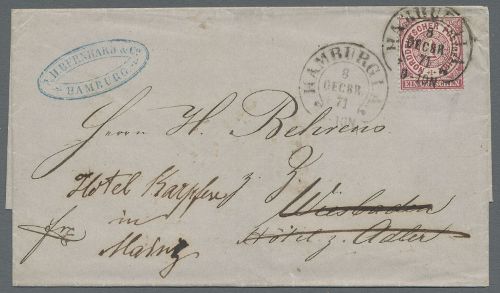 J.H. BERNHARD & Co.
HAMBURG
HAMBURG I.A.
8
DECBR.
71
HAMBURG
8
DECBR
71
NORDDEUTSCHER POSTBEZIRK
EIN GROSCHEN
Herrn H. Behrens
Hotel Karpfen
in
Mainz
fr
Z
Wiesbaden
Hôtel z. Adler